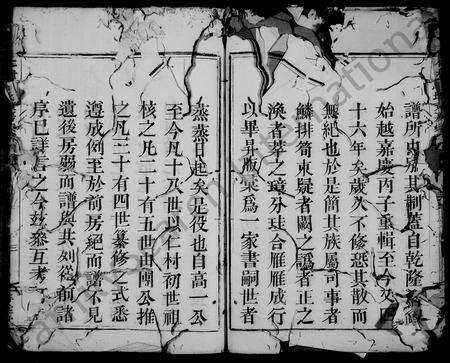 譜所由殖其制蓋自乾隆
始越嘉慶丙子重輯至今又
十六年矣歲久不修恐其散而
無紀也於是簡其族屬司事者
鱗排筍束疑者闕之譌者正之
渙者萃之璋分珪合雁雁成行
以畢昇版槀爲一家書嗣世者
蒸蒸日起矣是役也自高一公
至今凡十八世以仁村初世祖
核之凡二十有五世由團公推
之凡三十有四世纂修之式悉
遵成例至於前房絕而譜不見
遺後房毀而譜與共刻從前諸
序已詳言之今玆叅互考